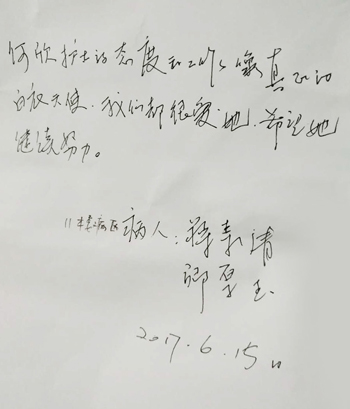 何欣护士的态度和工作像真正的
白衣天使、我们都很爱她、希望她
继续努力。
11楼病区 病人：蒋素清
卿厚玉
2017.6.15